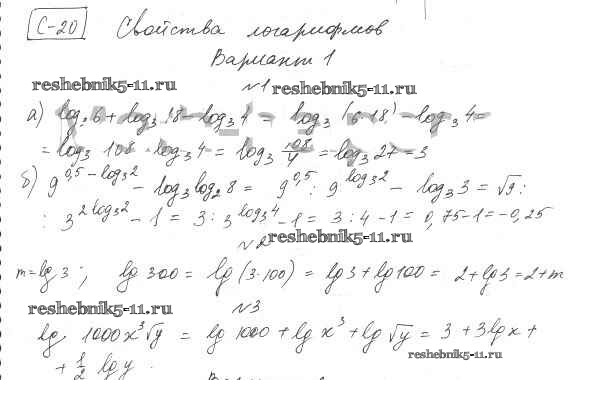 С-20 Свойства логарифмов
Вариант 1
reshebnik5-11.ru №1 reshebnik5-11.ru
а) log₃6 + log₃18 - log₃4 = log₃(6·18) - log₃4 =
= log₃ 108 - log₃4 = log₃ 108/4 = log₃ 27 = 3
б) 9^(0,5 - log₃2) - log₃log₂8 = 9^0,5 : 9^log₃2 - log₃3 = √9 :
: 3^(2log₃2) - 1 = 3 : 3^log₃4 - 1 = 3 : 4 - 1 = 0,75 - 1 = -0,25
№2 reshebnik5-11.ru
m = lg 3; lg 300 = lg (3·100) = lg 3 + lg 100 = 2 + lg 3 = 2 + m
reshebnik5-11.ru №3
lg 1000x³√y = lg 1000 + lg x³ + lg √y = 3 + 3lg x +
reshebnik5-11.ru
+ 1/2 lg y.